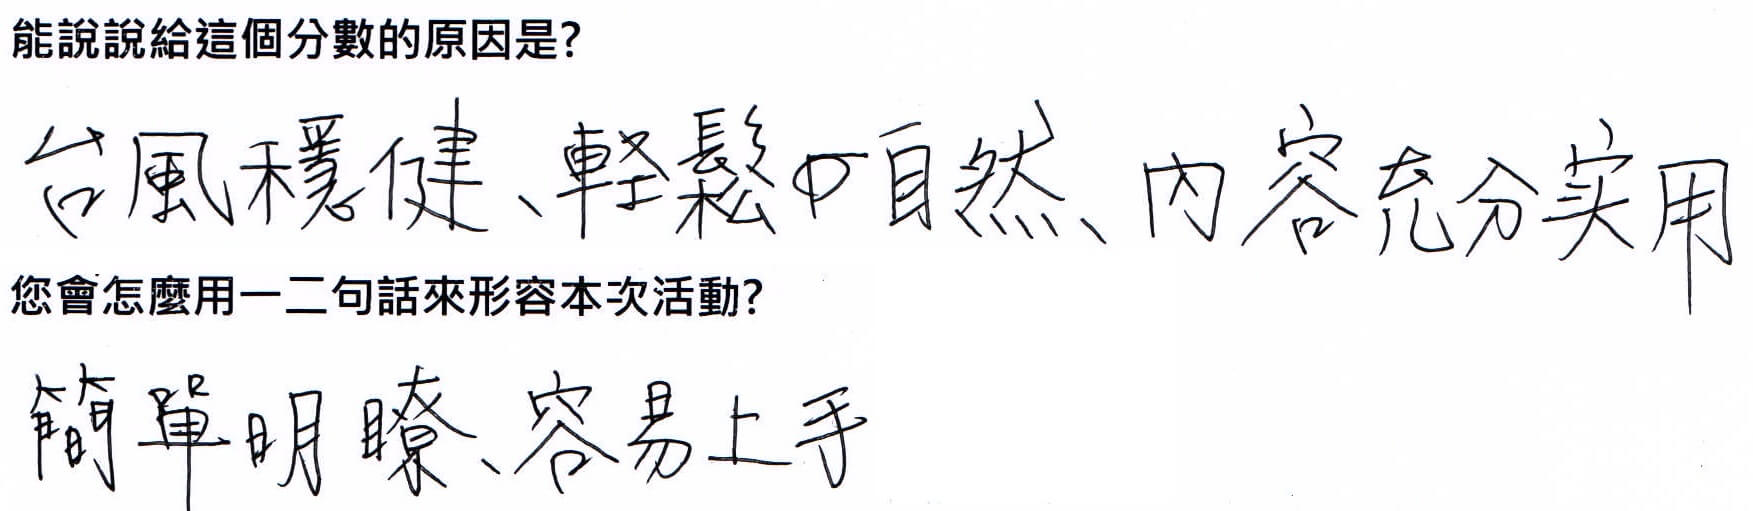 能說說給這個分數的原因是?
台風穩健、輕鬆中自然、內容充分实用
您會怎麼用一二句話來形容本次活動?
簡單明瞭、容易上手